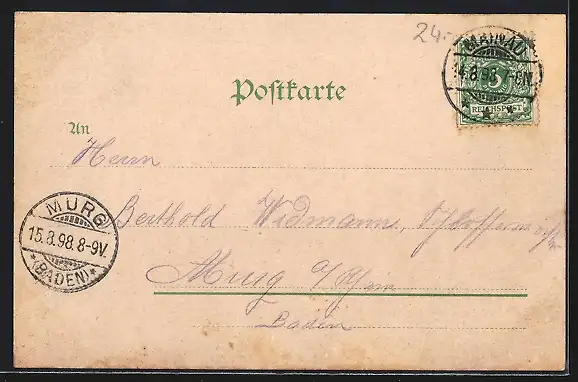 24.-
MAINAU
14.8.98.7-8N.
5
REICHSPOST
Postkarte
An
Herrn
Berthold Widmann, Schlossermstr
Murg a/Rhein
Baden
MURG
15.8.98.8-9V.
*(BADEN)*